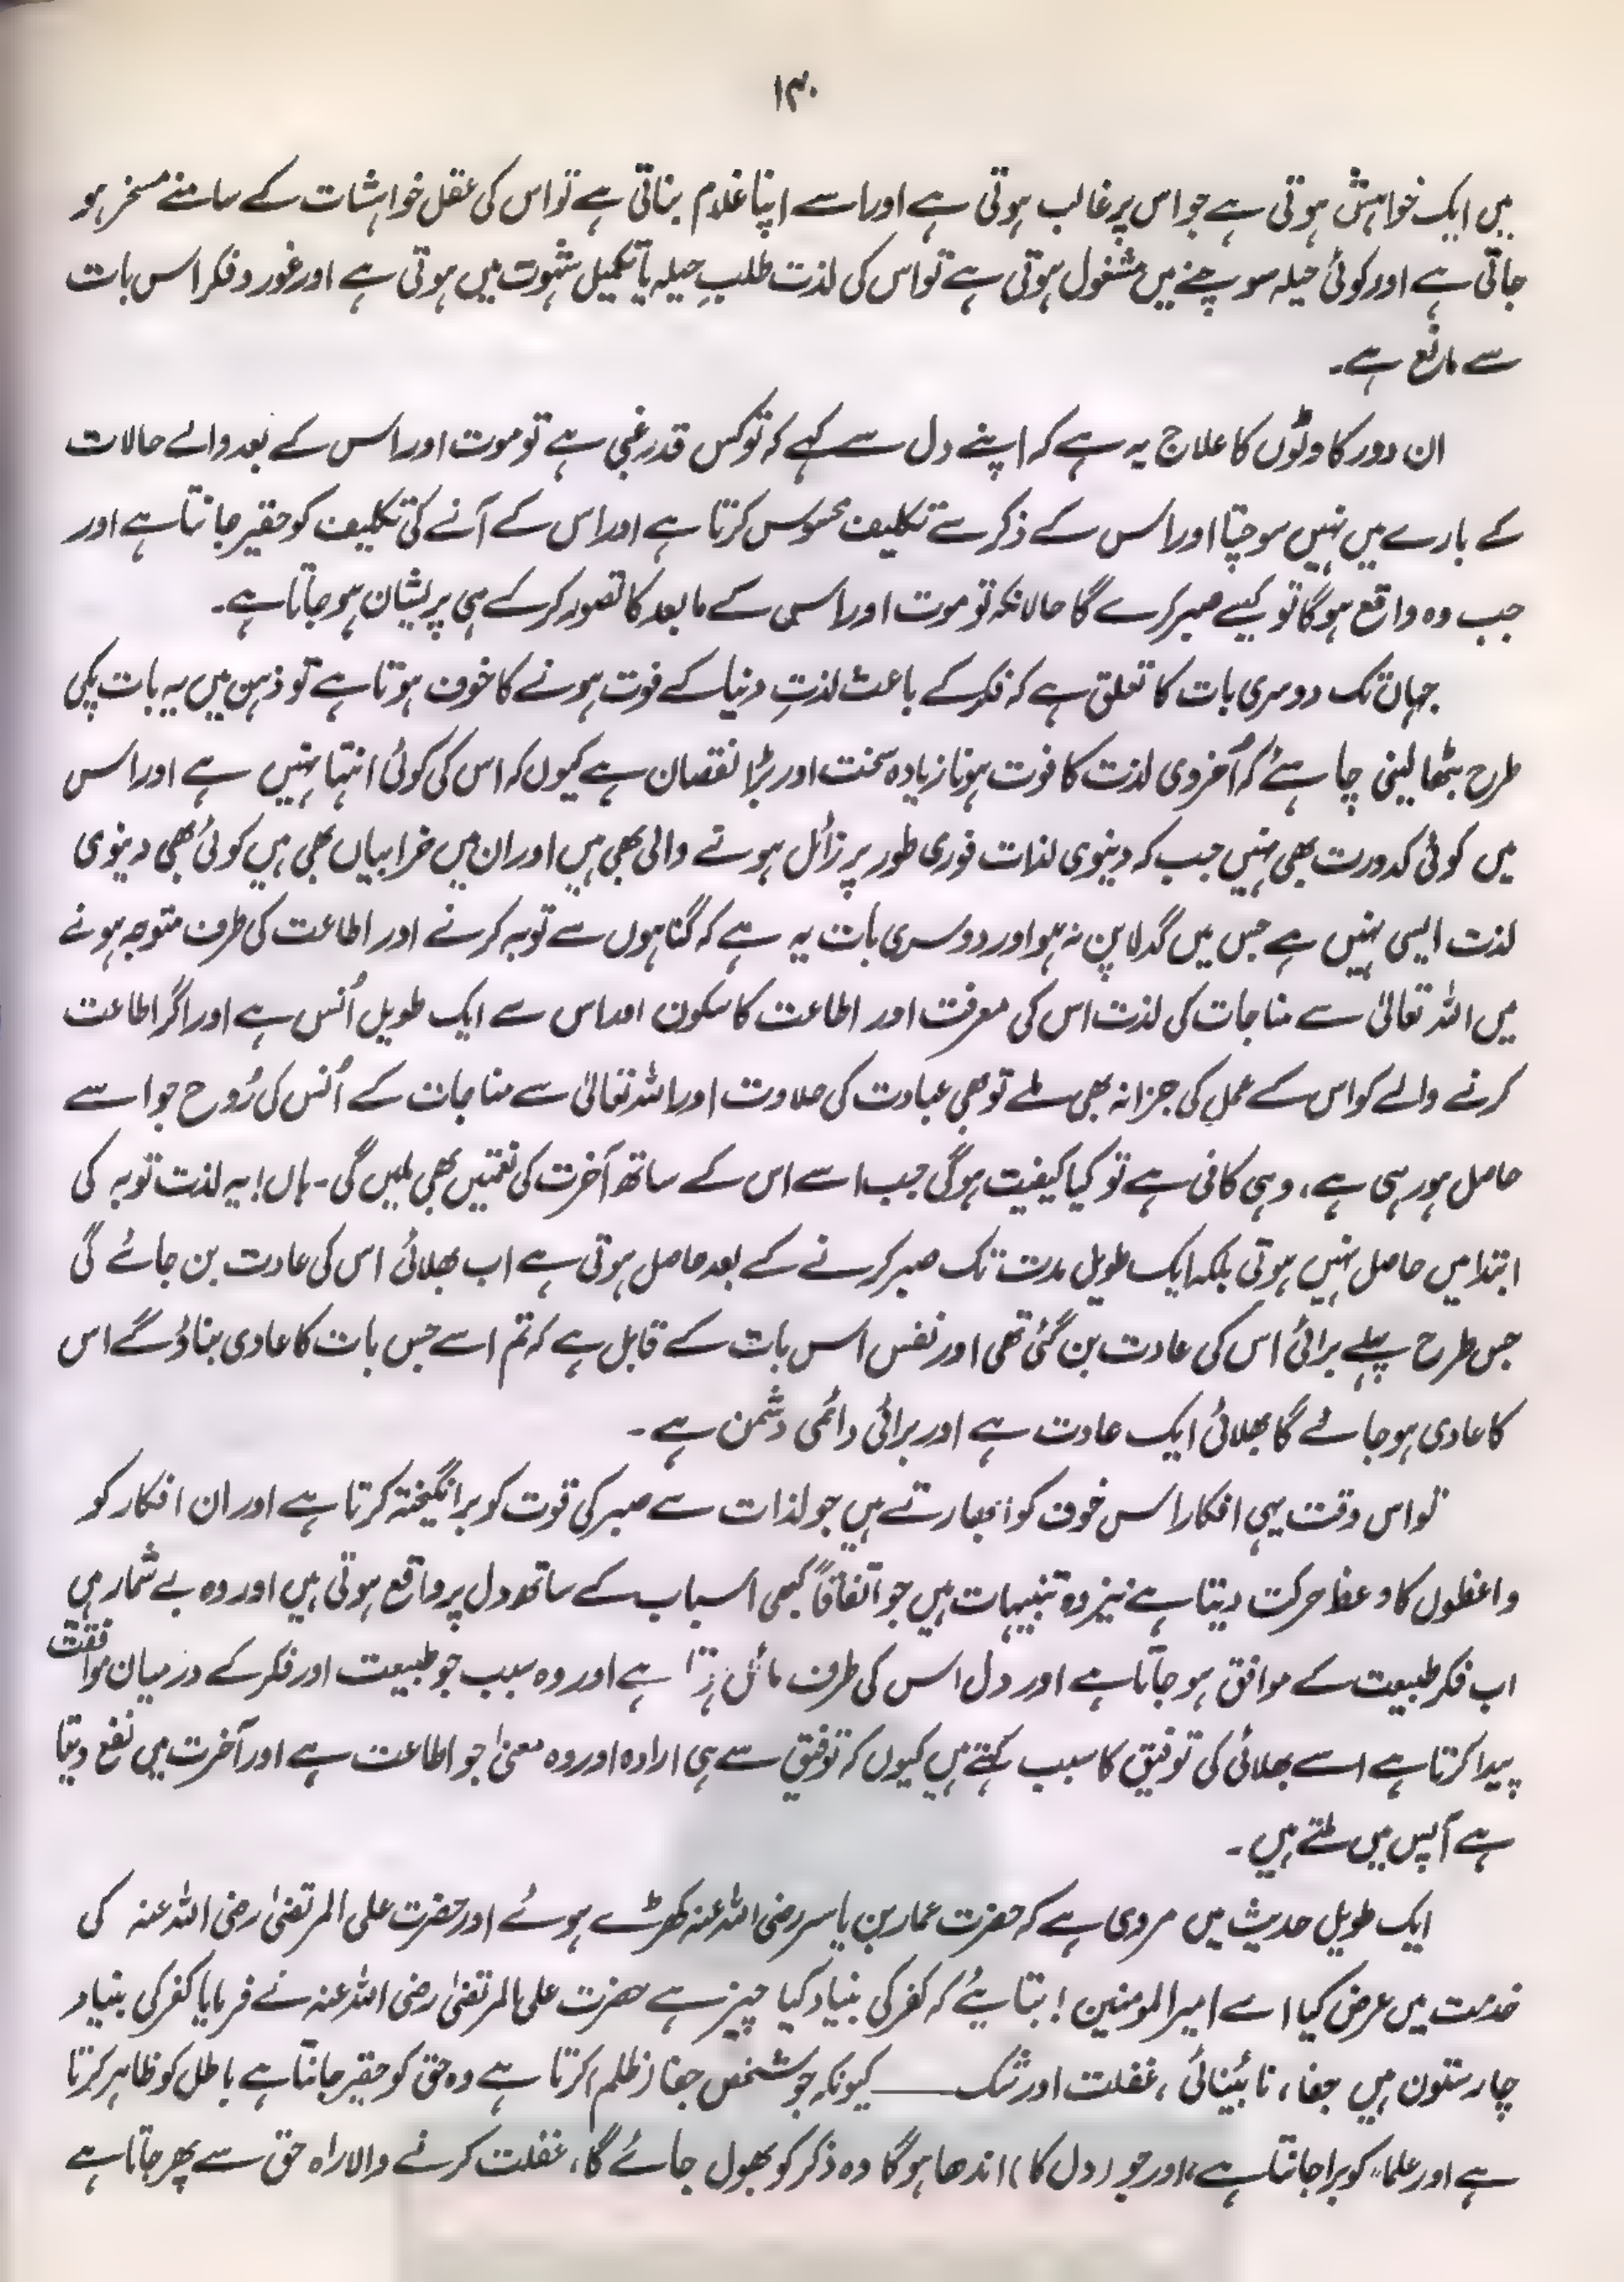 ۱۳۰
میں ایک خواہش ہوتی ہے جو اس پر غالب ہوتی ہے اور اسے اپنا غلام بناتی ہے تو اس کی عقل خواہشات کے سامنے مسخر ہو
جاتی ہے اور کوئی حیلہ سوچنے میں مشغول ہوتی ہے تو اس کی لذت طلبِ حیلہ یا تکمیل شہوت میں ہوتی ہے اور غور و فکر اس بات
سے مانع ہے۔
ان دو رکاوٹوں کا علاج یہ ہے کہ اپنے دل سے کہے کہ تو کس قدر غبی ہے تو موت اور اس کے بعد والے حالات
کے بارے میں نہیں سوچتا اور اس کے ذکر سے تکلیف محسوس کرتا ہے اور اس کے آنے کی تکلیف کو حقیر جانتا ہے اور
جب وہ واقع ہوگا تو کیسے صبر کرے گا حالانکہ تو موت اور اس کے مابعد کا تصور کرکے ہی پریشان ہوجاتا ہے۔
جہاں تک دوسری بات کا تعلق ہے کہ فکر کے باعث لذتِ دنیا کے فوت ہونے کا خوف ہوتا ہے تو ذہن میں یہ بات پکی
طرح بٹھا لینی چاہئے کہ اُخروی لذت کا فوت ہونا زیادہ سخت اور بڑا نقصان ہے کیوں کہ اس کی کوئی انتہا نہیں ہے اور اس
میں کوئی کدورت بھی نہیں جب کہ دینوی لذات فوری طور پر زائل ہونے والی بھی ہیں اور ان میں خرابیاں بھی ہیں کوئی بھی دینوی
لذت ایسی نہیں ہے جس میں گدلا پن نہ ہو اور دوسری بات یہ ہے کہ گناہوں سے توبہ کرنے اور اطاعت کی طرف متوجہ ہونے
میں اللہ تعالیٰ سے مناجات کی لذت اس کی معرفت اور اطاعت کا سکون اور اس سے ایک طویل اُنس ہے اور اگر اطاعت
کرنے والے کو اس کے عمل کی جزا نہ بھی ملے تو بھی عبادت کی حلاوت اور اللہ تعالیٰ سے مناجات کے اُنس کی رُوح جو اسے
حاصل ہورہی ہے، وہی کافی ہے تو کیا کیفیت ہوگی جب اسے اس کے ساتھ آخرت کی نعمتیں بھی ملیں گی۔ ہاں! یہ لذت توبہ کی
ابتدا میں حاصل نہیں ہوتی بلکہ ایک طویل مدت تک صبر کرنے کے بعد حاصل ہوتی ہے اب بھلائی اس کی عادت بن جائے گی
جس طرح پہلے برائی اس کی عادت بن گئی تھی اور نفس اس بات کے قابل ہے کہ تم اسے جس بات کا عادی بناؤ گے اس
کا عادی ہوجائے گا بھلائی ایک عادت ہے اور برائی دائمی دشمن ہے۔
تو اس وقت یہی افکار اس خوف کو ابھارتے ہیں جو لذات سے صبر کی قوت کو برانگیختہ کرتا ہے اور ان افکار کو
واعظوں کا وعظ حرکت دیتا ہے نیز وہ تنبیہات ہیں جو اتفاقاً کبھی اسباب کے ساتھ دل پر واقع ہوتی ہیں اور وہ بے شمار ہیں
اب فکر طبیعت کے موافق ہوجاتا ہے اور دل اس کی طرف مائل ہے اور وہ سبب جو طبیعت اور فکر کے درمیان موافقت
پیدا کرتا ہے اسے بھلائی کی توفیق کا سبب کہتے ہیں کیوں کہ توفیق سے ہی ارادہ اور وہ معنیٰ جو اطاعت ہے اور آخرت میں نفع دیتا
ہے آپس میں ملتے ہیں۔
ایک طویل حدیث میں مروی ہے کہ حضرت عمار بن یاسر رضی اللہ عنہ کھڑے ہوئے اور حضرت علی المرتضیٰ رضی اللہ عنہ کی
خدمت میں عرض کیا اے امیر المومنین! بتائیے کہ کفر کی بنیاد کیا چیز ہے حضرت علی المرتضیٰ رضی اللہ عنہ نے فرمایا کفر کی بنیاد
چار ستون ہیں جفا، نابینائی، غفلت اور شک ـــــ کیونکہ جو شخص جفا (ظلم) کرتا ہے وہ حق کو حقیر جانتا ہے باطل کو ظاہر کرتا
ہے اور علماء کو برا جانتا ہے، اور جو (دل کا) اندھا ہوگا وہ ذکر کو بھول جائے گا، غفلت کرنے والا راہ حق سے پھر جاتا ہے